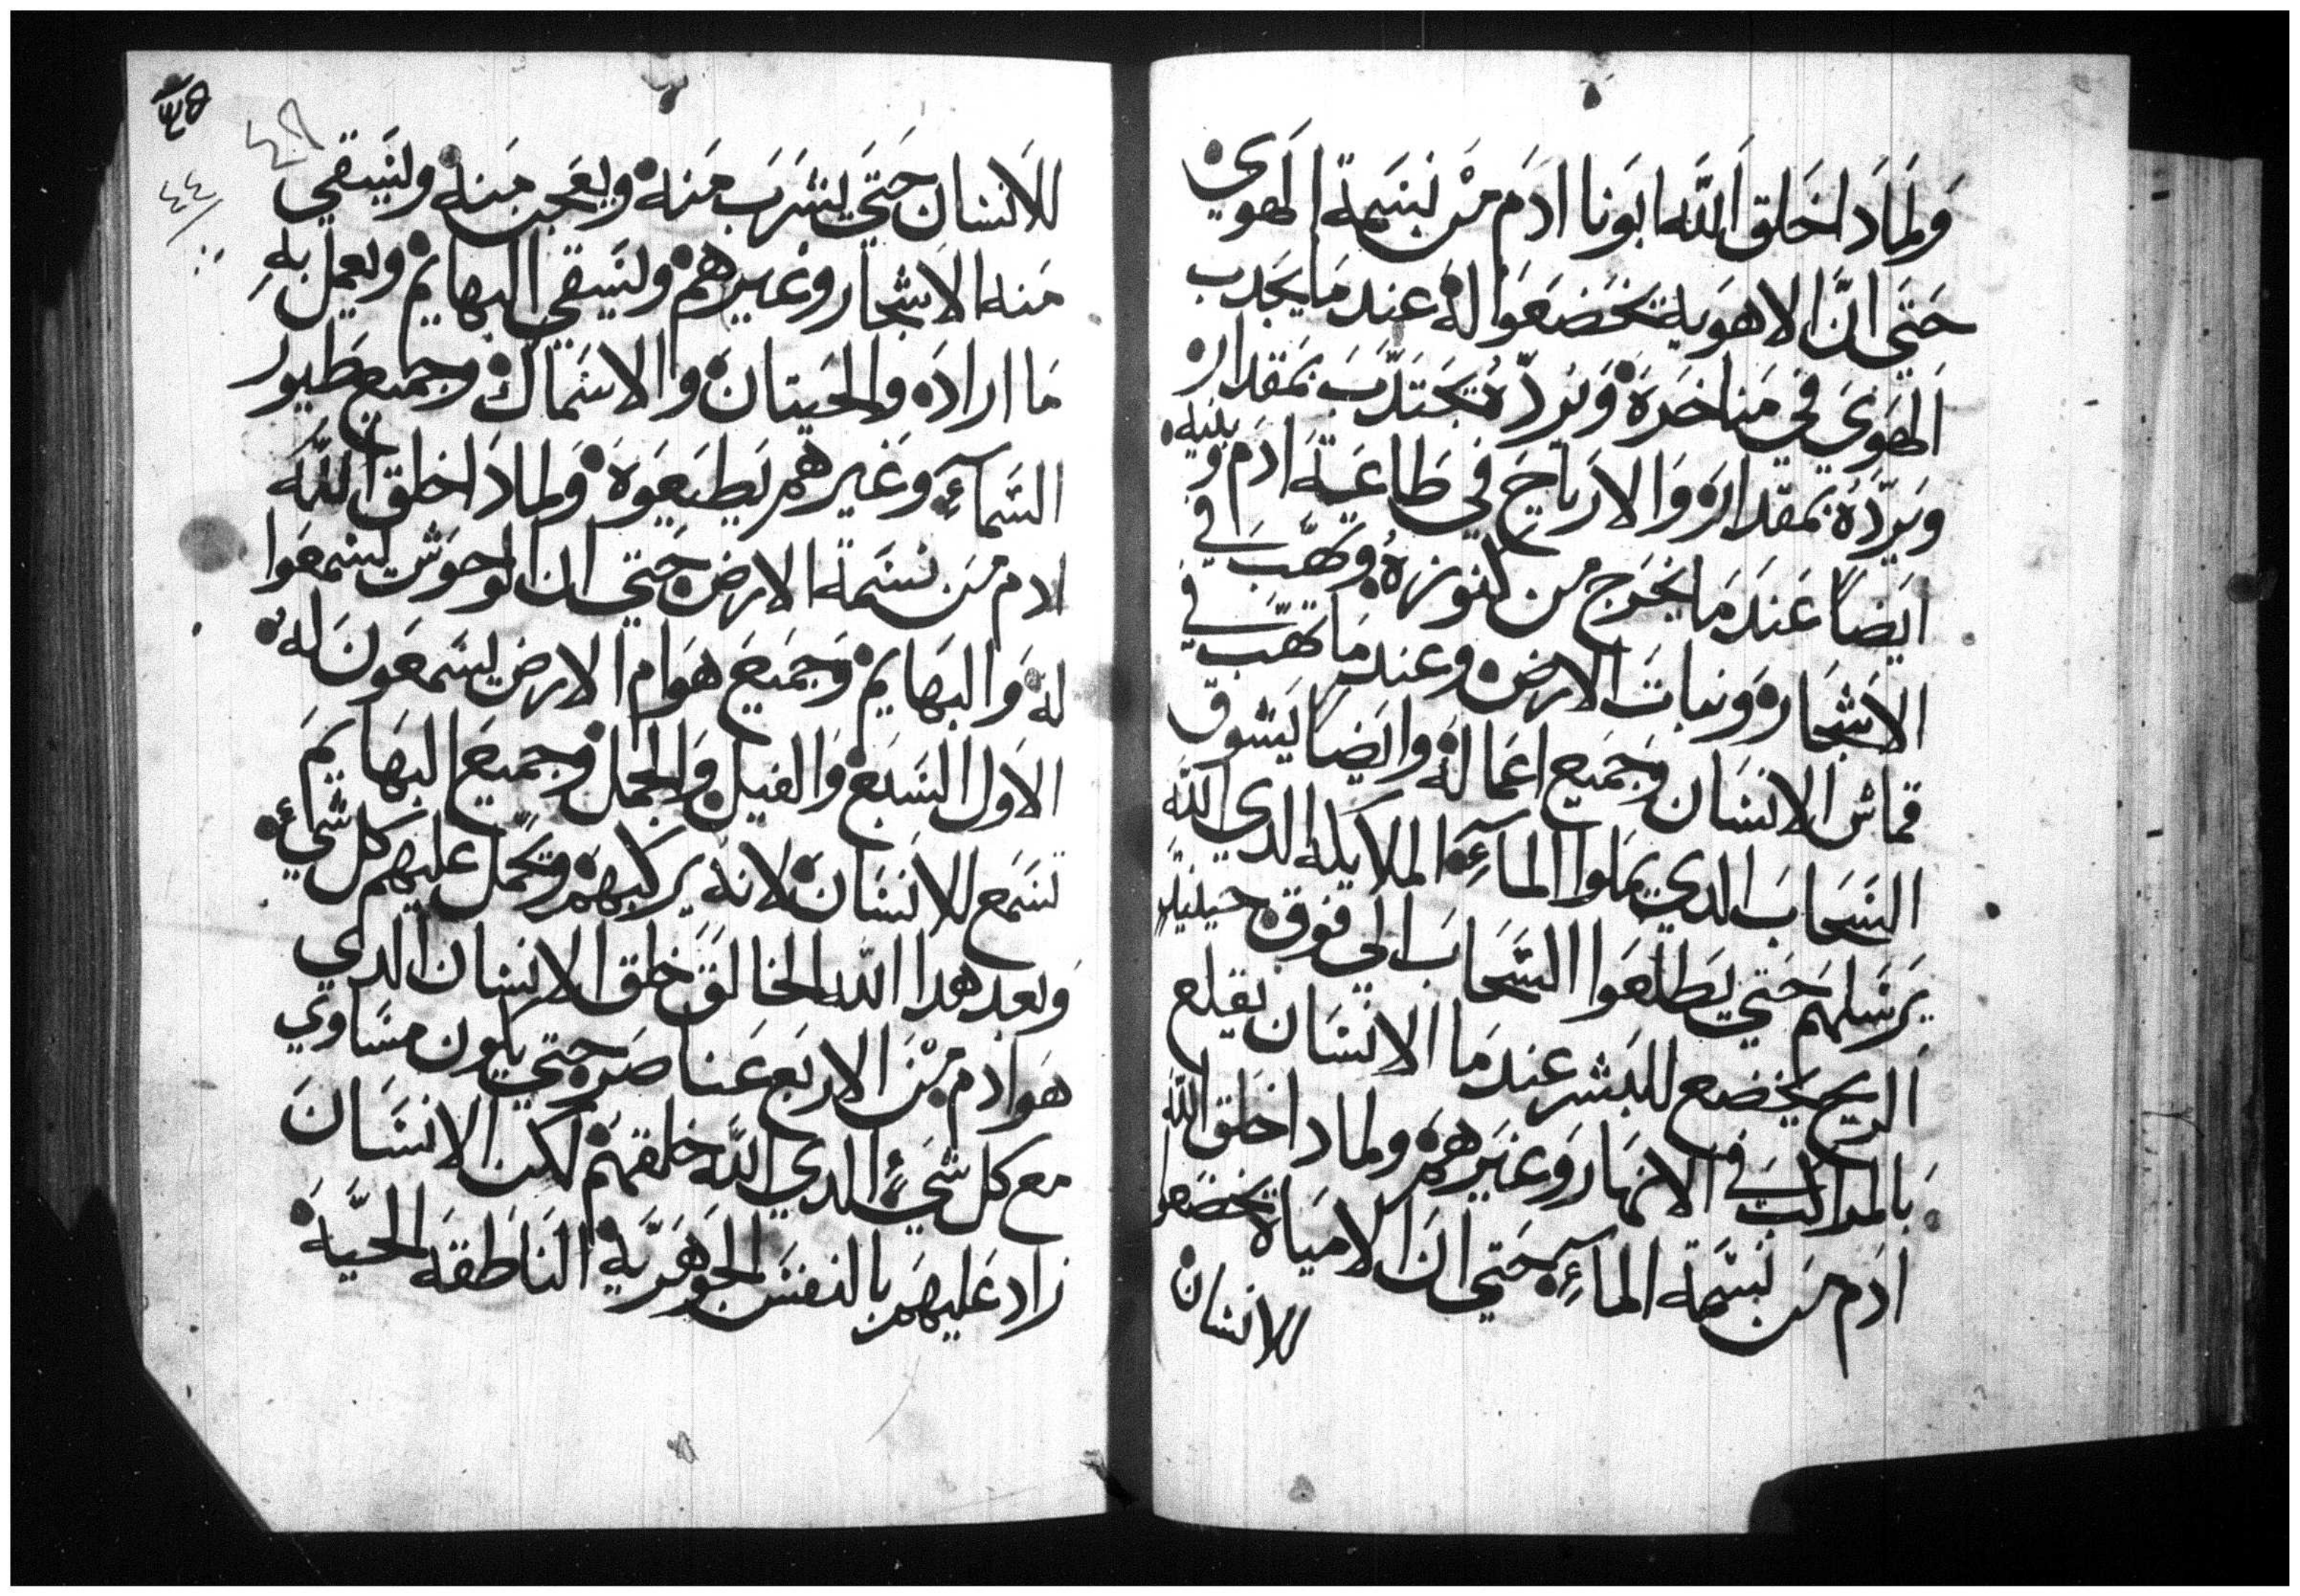 وَلمَادَا خَلق اَللَّه ابوَنا ادَم مْن نسَمة الهوي
حَتَي انَّ الاهوَية تخَضعَوا لهَ عند مَا يجَدب
اَلهوَي في مَناخرَه وَيردّهُ يجَتدّبَ بمَقدار
وَيرَدّهُ بمقدارَه وَالارَياحَ في طَاعَية ادَم وَبنيه
ايَضاً عَندَ مَا يخَرَج مَن كنوزهُ وتهَّبَ في
الاشجَار وَنباتَ الارض وعندمَا تهَّبَ في
قماش الانسَان وَجَميع اعَمالهَ وايَضاً يَسَوق
السَحابَ الدي يَملوا المآءِ الملايكه الدي اللّه
يرَسَلهم حَتي يَطلعَوا السَّحَابَ الي فوَق حينيدٍ
اَلريح يخضع للبَشر عندَمَا الانسَان يقلع
بَالمراكبَ في الانهَار وَغيَرهمَ ولمادا خلق اللّه
ادَم مَن نسَّمَة المآءِ حَتي انَ الامياَه تخضعوا
للانسان
٤٩
٤٤
للاَنسَان حَتَي يشرَبَ مَنهَ وَيعَجن مَنهَ وليَسَقي
مَنه الاشجار وغيرهمَ وليَسَقي البهايم وَيعمل بهِ
مَا ارادَه والحَيتانَ والاسَماكَ وجميع طَيور
السَّمآءِ وَغيرهم يَطيَعَوهَ وَلمادَا خلق اَللَّه
ادم مَن نسَمة الارض حَتي ان الوحوَش يسَمعَوا
لهَ وَالبَهايم وَجَميَعَ هوَام الارض يسَمعَونَ لهَ
الاوَل السَبع وَالفيل وَالجَمل وَجميعَ البَهايمَ
تسَمع للانسَانَ لانهَ يرَكبهمَ وَيحمّل عليهم كل شيءٍ
وَبعَد هدا اللّه الخالقَ خلق الانسان الدي
هوَ ادَم مْنَ الاربَع عَناصَر حَتي يكون مسَاوي
مع كل شيءٍ الدي اللَّه خلقهمَ لكن الانسَانَ
زاد عَليهمَ بالنفسَ الجوَهرَيّة الناطقَه الحَيَّةَ